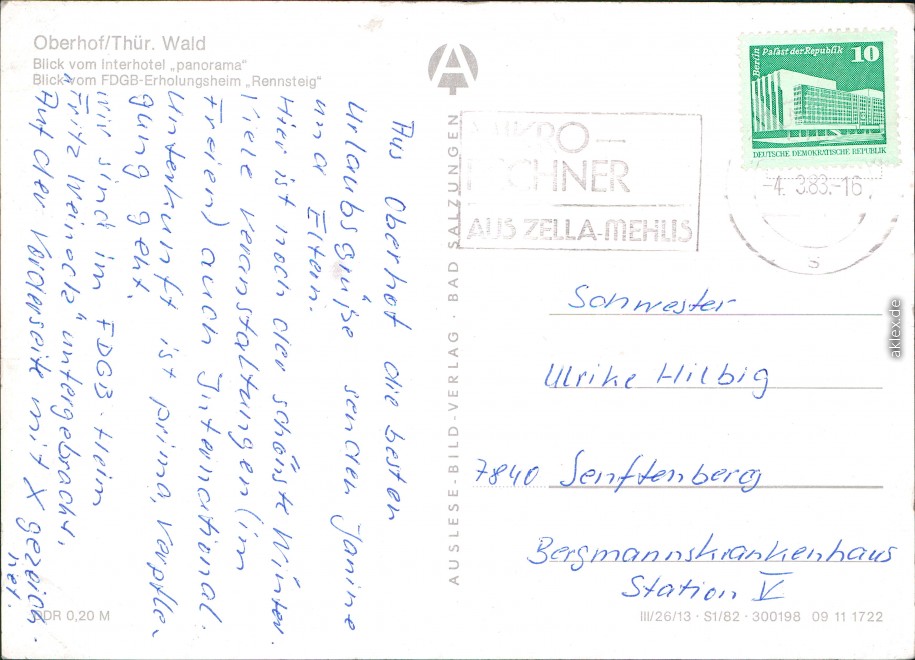 Oberhof/Thür. Wald
Blick vom Interhotel „panorama“
Blick vom FDGB-Erholungsheim „Rennsteig“
Aus Oberhof die besten
Urlaubsgrüße senden Janine
und Eltern.
Hier ist noch der schönste Winter.
Viele Veranstaltungen (im
Freien) auch International.
Unterkunft ist prima, Verpfle-
gung geht.
Wir sind im FDGB-Heim
"Fritz Weineck" untergebracht,
Auf der Vorderseite mit X gezeich-
net.
DDR 0,20 M
AUSLESE-BILD-VERLAG · BAD SALZUNGEN
RECHNER
AUS ZELLA-MEHLIS
Berlin Palast der Republik 10
DEUTSCHE DEMOKRATISCHE REPUBLIK
-4. 3.83.-16
s
Schwester
Ulrike Hilbig
7840 Senftenberg
Bergmannskrankenhaus
Station V
III/26/13 · S1/82 · 300198 09 11 1722
aklex.de